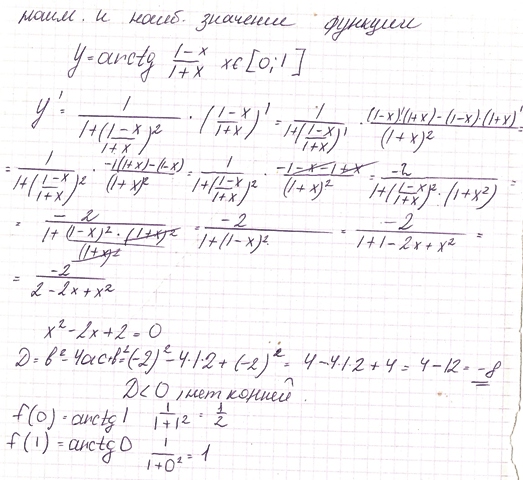 наим. и наиб. значении функции
y = arctg (1-x)/(1+x) x∈[0;1]
y' = 1/(1+((1-x)/(1+x))²) · ((1-x)/(1+x))' = 1/(1+((1-x)/(1+x))') · ((1-x)'(1+x)-(1-x)(1+x)')/(1+x)² =
= 1/(1+((1-x)/(1+x))²) · (-1(1+x)-(1-x))/(1+x)² = 1/(1+((1-x)/(1+x))²) · (-1-x-1+x)/(1+x)² = -2/(1+((1-x)/(1+x))²·(1+x²)) =
= -2/(1+((1-x)²·(1+x)²)/(1+x)²) = -2/(1+(1-x)²) = -2/(1+1-2x+x²) =
= -2/(2-2x+x²)
x²-2x+2=0
D= b²-4ac+b²=(-2)²-4·1·2+(-2)² = 4-4·1·2+4 = 4-12 = -8
D<0, нет корней.
f(0)=arctg1 1/(1+1²) = 1/2
f(1)=arctg0 1/(1+0²) = 1